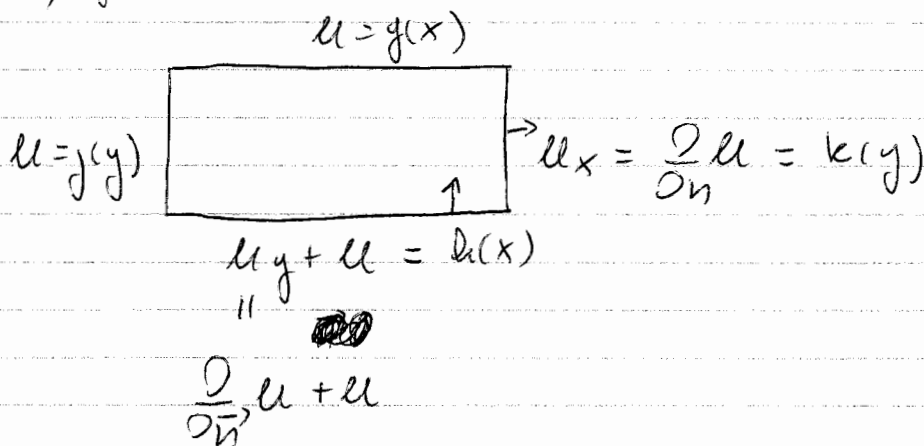 u = g(x)
u = j(y)
→ u_x = ∂/∂n u = k(y)
↑
u_y + u = h(x)
"
∂/∂n u + u